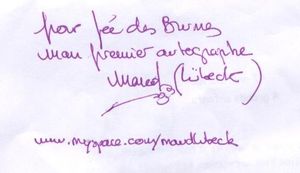 pour fée des Brumes
mon premier autographe
Maud (Lübeck)
www.myspace.com/maudlubeck